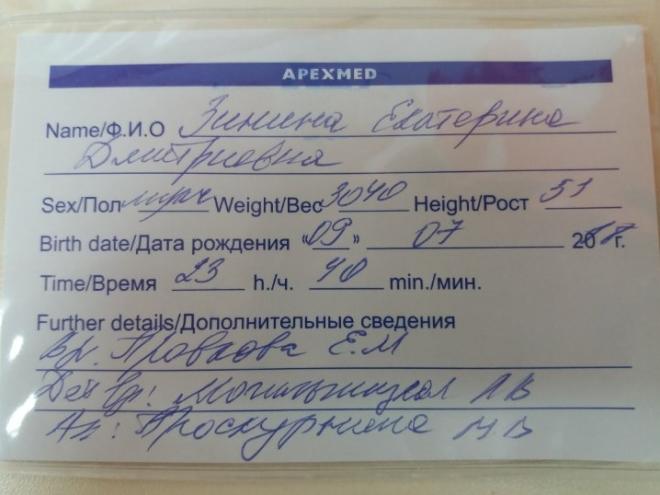 APEXMED
Name/Ф.И.О Зинина Екатерина
Дмитриевна
Sex/Пол муж Weight/Вес 3040 Height/Рост 51
Birth date/Дата рождения «09» 07 2018г.
Time/Время 23 h./ч. 40 min./мин.
Further details/Дополнительные сведения
Вр. Е.М
Дет вр: ЛВ
Ак: Проскурнина МВ